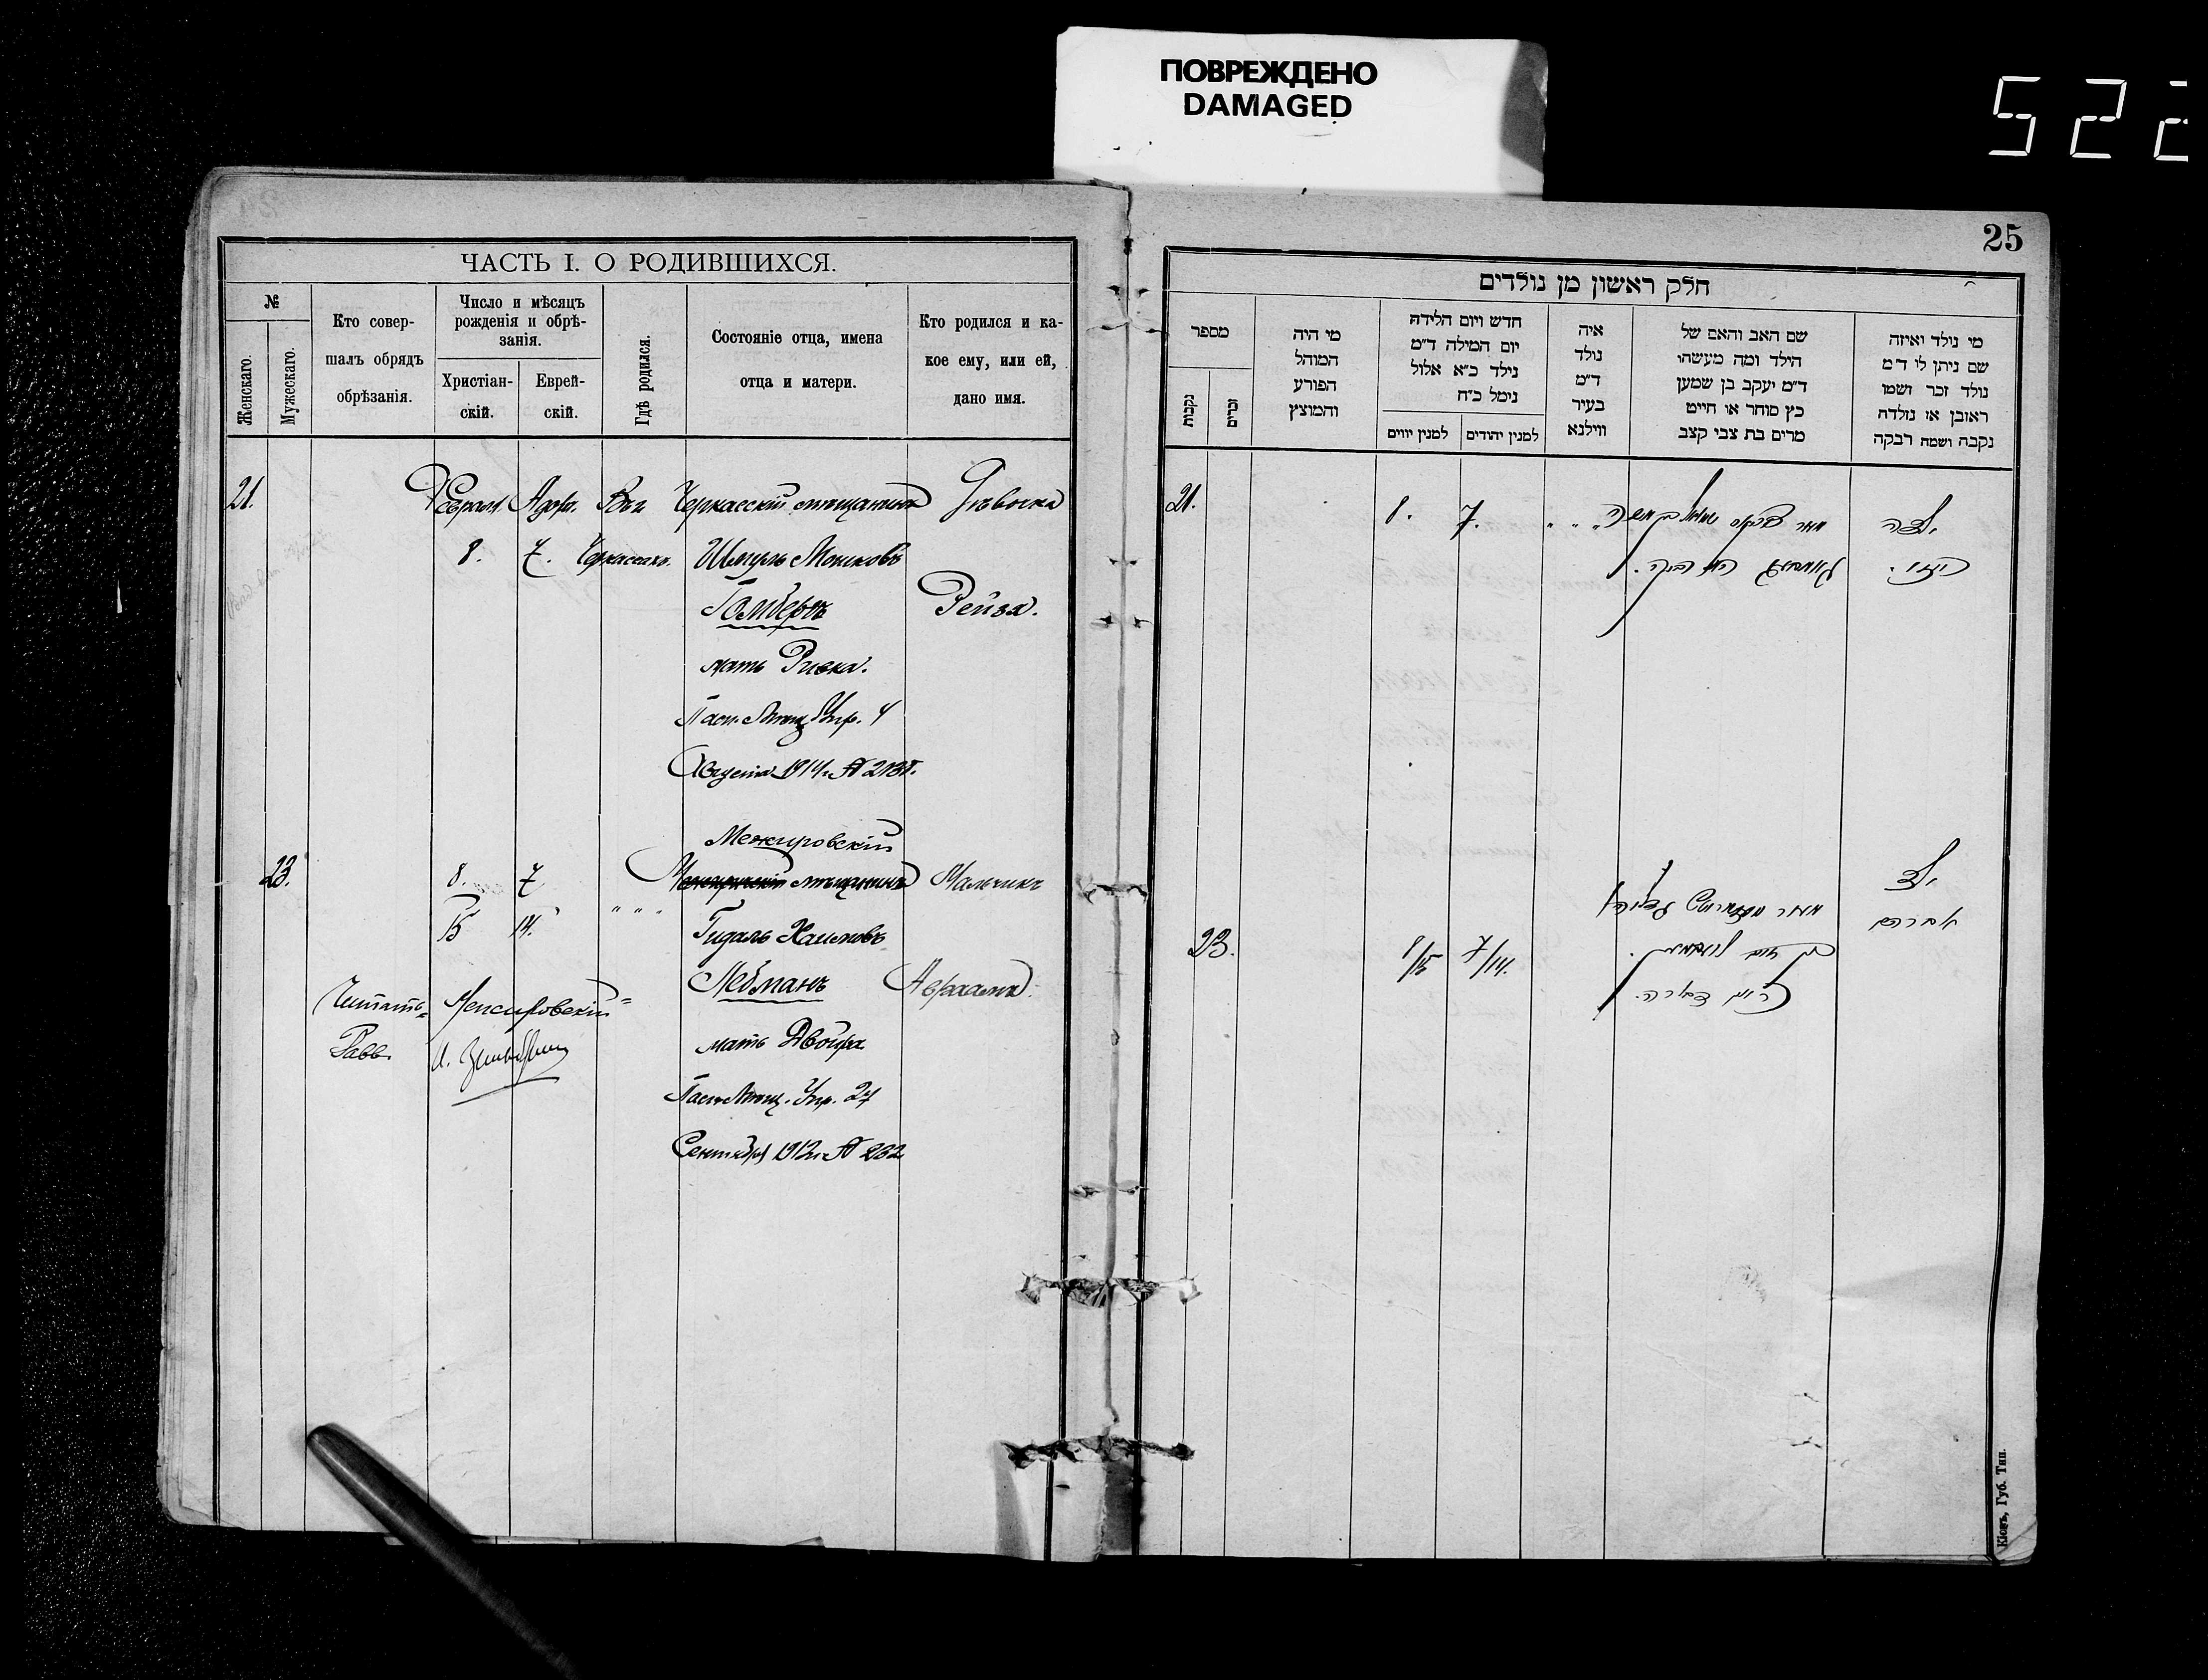 ПОВРЕЖДЕНО
DAMAGED
522
ЧАСТЬ I. О РОДИВШИХСЯ.
№
Женскаго.
Мужескаго.
Кто совер-
шалъ обрядъ
обрѣзанія.
Число и мѣсяцъ
рожденія и обрѣ-
занія.
Христіан-
скій.
Еврей-
скій.
Гдѣ родился.
Состояніе отца, имена
отца и матери.
Кто родился и ка-
кое ему, или ей,
дано имя.
21.
Феврал. Адоръ. Въ г. Черкасскій мѣщанинъ Дѣвочка
8. 7. Черкассахъ. Шмуль Мошковъ
Гомбергъ Рейза.
мать Ривка.
Пасп. Мѣщ. Упр. 4
Августа 1914 г. №
Межировскій
23. 8. 7 мѣщанинъ Мальчикъ
15 14. " " " Гидаль Хаимовъ
Лебманъ Авраамъ.
мать Двойра
Пасп. Мѣщ. Упр. 27
Сентября 1912 г. № 232
Читать= Межировскій=
Равв.
25
חלק ראשון מן נולדים
מספר
נקבות
זכרים
מי היה
המוהל
הפורע
והמוצץ
חדש ויום הלידה
יום המילה ד״מ
נילד כ״א אלול
נימל כ״ח
למנין יווים
למנין יהודים
איה
נולד
ד״מ
בעיר
ווילנא
שם האב והאם של
הילד ומה מעשהו
ד״מ יעקב בן שמען
כץ סוחר או חייט
מרים בת צבי קצב
מי נולד ואיזה
שם ניתן לו ד״מ
נולד זכר ושמו
ראובן או נולדה
נקבה ושמה רבקה
21. 8. 7. " " "
ילדה
רייזי.
ילד
אברהם
23. 8/15 7/14.
דבורה.
Кіевъ, Губ. Тип.